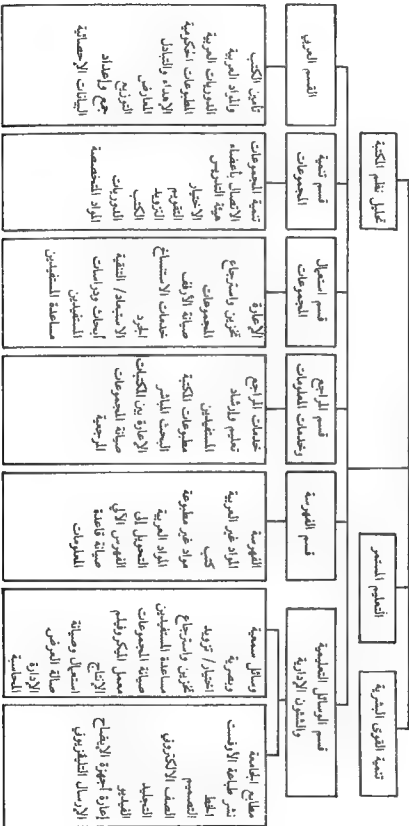 تحليل نظم المكتبة
التعليم المستمر
تنمية القوى البشرية
القسم العربي
قسم تنمية
المجموعات
قسم استعمال
المجموعات
قسم المراجع
وخدمات المعلومات
قسم الفهرسة
قسم الوسائل التعليمية
والشئون الإدارية
تأمين الكتب
والمواد العربية
الدوريات العربية
المطبوعات الحكومية
الاهداء والتبادل
المعارض
التوزيع
جمع وإعداد
البيانات الإحصائية
تنمية المجموعات
الاتصال بأعضاء
هيئة التدريس
الاختيار
التقويم
التزويد
الكتب
الدوريات
المواد المتخصصة
الإعارة
تخزين واسترجاع
المجموعات
صيانة الأرفف
خدمات الاستنساخ
الجرد
الاستبعاد/ التنقية
أبحاث ودراسات
المستفيدين
مساعدة المستفيدين
خدمات المراجع
تعليم وإرشاد
المستفيدين
مطبوعات المكتبة
البحث المباشر
الإعارة بين المكتبات
صيانة المجموعات
المرجعية
الفهرسة
المواد غير العربية
كتب
مواد غير مطبوعة
المواد العربية
التحويل إلى
الفهرس الآلي
صيانة قاعدة
المعلومات
وسائل سمعية
وبصرية
اختيار/ تزويد
تخزين واسترجاع
مساعدة المستفيدين
صيانة المجموعات
معمل الميكروفيلم
الإنتاج
استعمال وصيانة
صالة العرض
الإدارة
المحاسبة
مطابع الجامعة
نشر طباعة الأوفست
الخط
التصميم
الصف الالكتروني
التجليد
الفيديو
إعارة أجهزة الإيضاح
الإرسال التليفزيوني